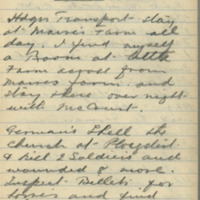 Hdqrs Transport stay
at Marris Farm all
day. I find myself
a Room at little
Farm across from
Marris Farm and
stay there over night
with McCourt.
Germans Shell the
Church at Ploegstert
& Kill 2 Soldiers and
wounded 4 more.
Inspect Billets for
horses and find